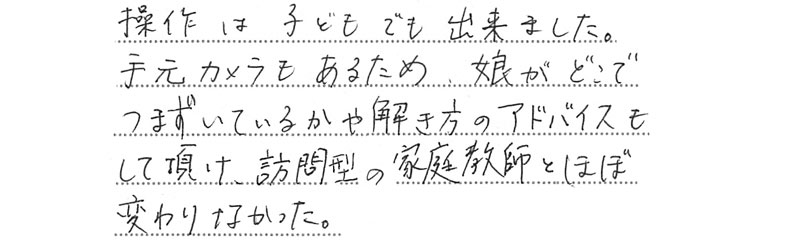 操作は子どもでも出来ました。
手元カメラもあるため、娘がどこで
つまずいているかや解き方のアドバイスも
して頂け、訪問型の家庭教師とほぼ
変わりなかった。